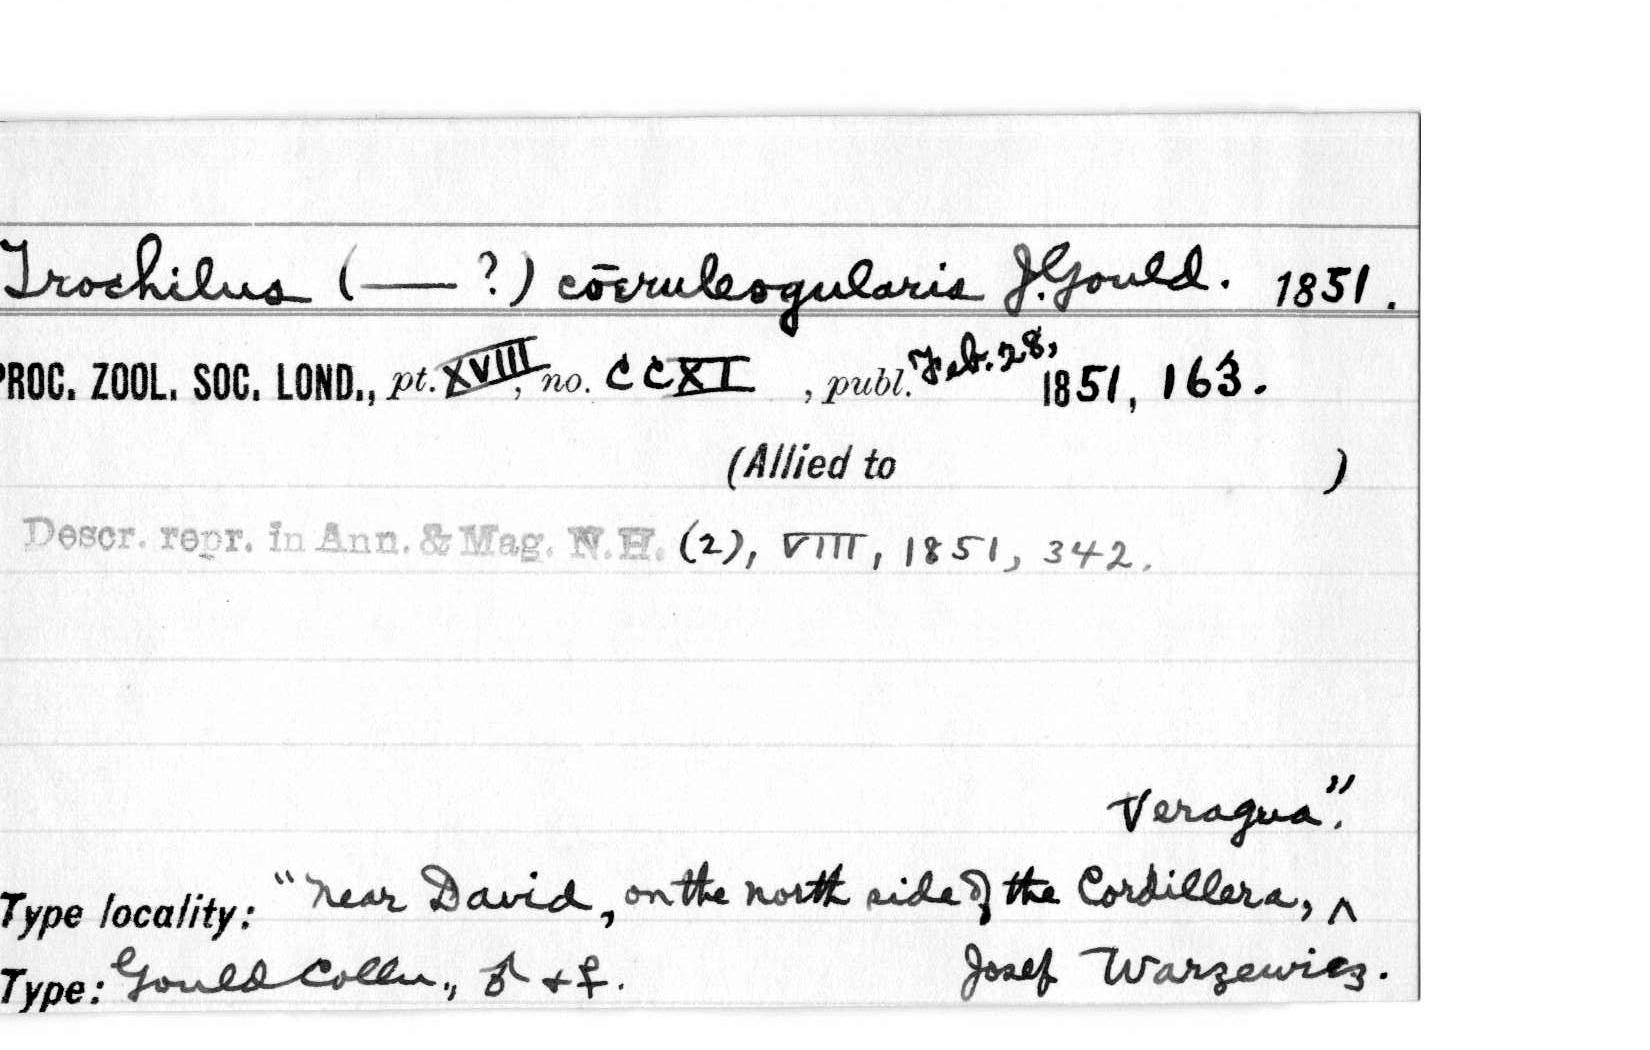 Trochilus (— ?) cōeruleogularis J. Gould. 1851.
PROC. ZOOL. SOC. LOND., pt. XVIII, no. CCXI , publ. Feb. 28, 1851, 163.
(Allied to )
Descr. repr. in Ann. & Mag. N.H. (2), VIII, 1851, 342.
Veragua".
Type locality: "near David, on the north side of the Cordillera, ^
Type: Gould Colln., ♂ + ♀. Josef Warzewicz.